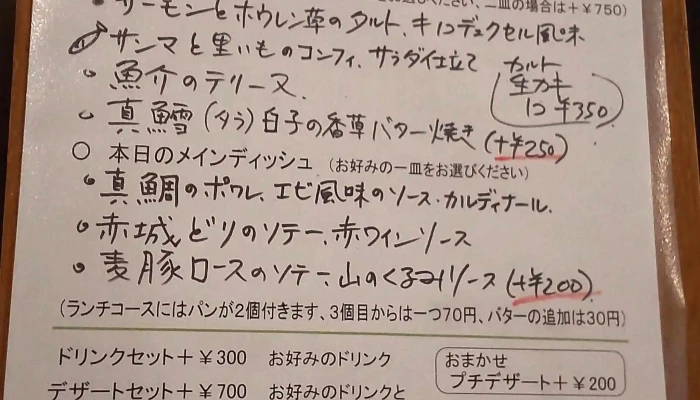 お選びください、二皿の場合は+￥750)
・サーモンとホウレン草のタルト、キノコデュクセル風味
サンマと里いものコンフィ、サラダ仕立て
・魚介のテリーヌ
カルト
生カキ
1コ ￥350
・真鱈(タラ)白子の香草バター焼き (+￥250)
○ 本日のメインディッシュ (お好みの一皿をお選びください)
・真鯛のポワレ、エビ風味のソース・カルディナール、
・赤城どりのソテー、赤ワインソース
・麦豚ロースのソテー、山のくるみソース (+￥200)
(ランチコースにはパンが2個付きます、3個目からは一つ70円、バターの追加は30円)
ドリンクセット+￥300 お好みのドリンク
おまかせ
プチデザート+￥200
デザートセット+￥700 お好みのドリンクと